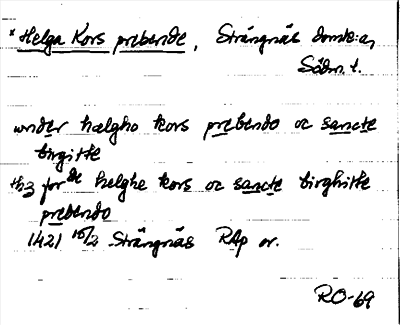 * Helga Kors prebende, Strängnäs domk:a,
Södm. l.
under hælgho kors prebendo oc sancte
birgitte
thz forde helghe kors oc sancte birghitte
prebendo
1421 10/2 Strängnäs RAp or.
RO-69